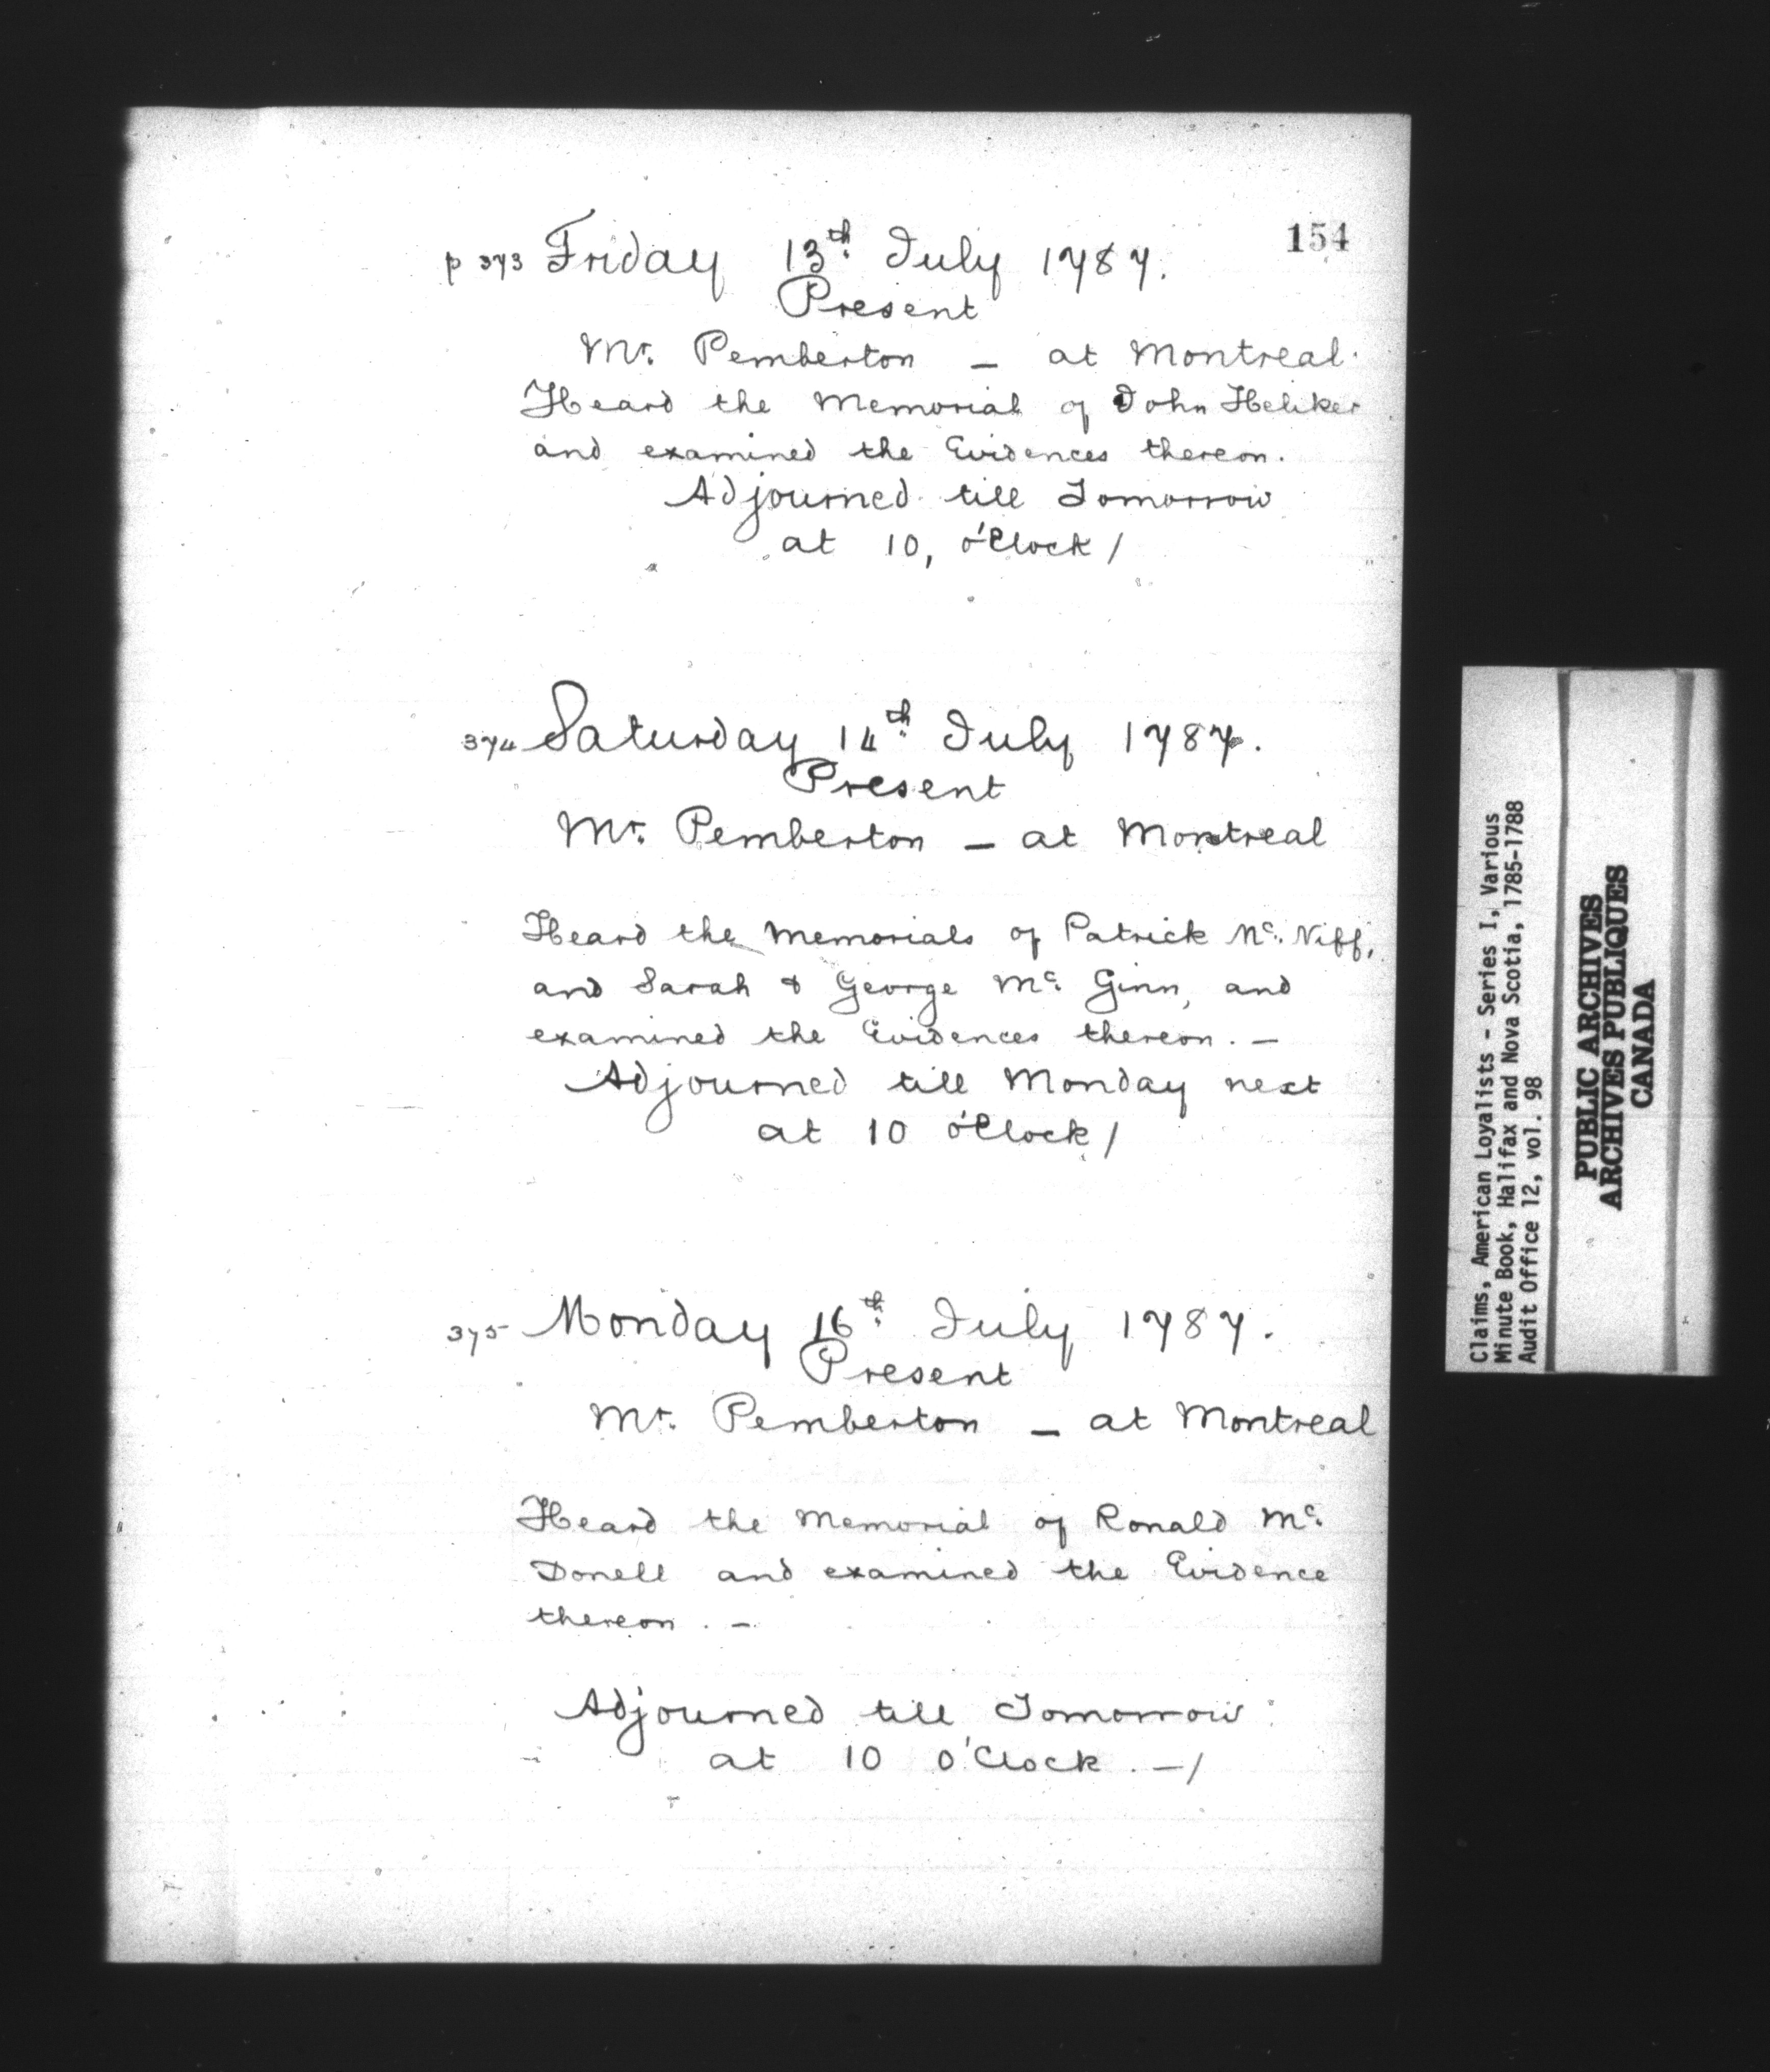 154
p 373 Friday 13th. July 1787.
Present
Mr. Pemberton — at Montreal.
Heard the Memorial of John Heliker
and examined the Evidences thereon.
Adjourned till Tomorrow
at 10, o'Clock /
374 Saturday 14th. July 1787.
Present
Mr. Pemberton — at Montreal
Heard the Memorials of Patrick Mc. Niff,
and Sarah & George Mc. Ginn, and
examined the Evidences thereon. —
Adjourned till Monday next
at 10 o'Clock /
375 Monday 16th. July 1787.
Present
Mr. Pemberton — at Montreal
Heard the Memorial of Ronald Mc.
Donell and examined the Evidence
thereon. —
Adjourned till Tomorrow
at 10 o'Clock. — /
Claims, American Loyalists - Series I, Various
Minute Book, Halifax and Nova Scotia, 1785-1788
Audit Office 12, vol. 98
PUBLIC ARCHIVES
ARCHIVES PUBLIQUES
CANADA